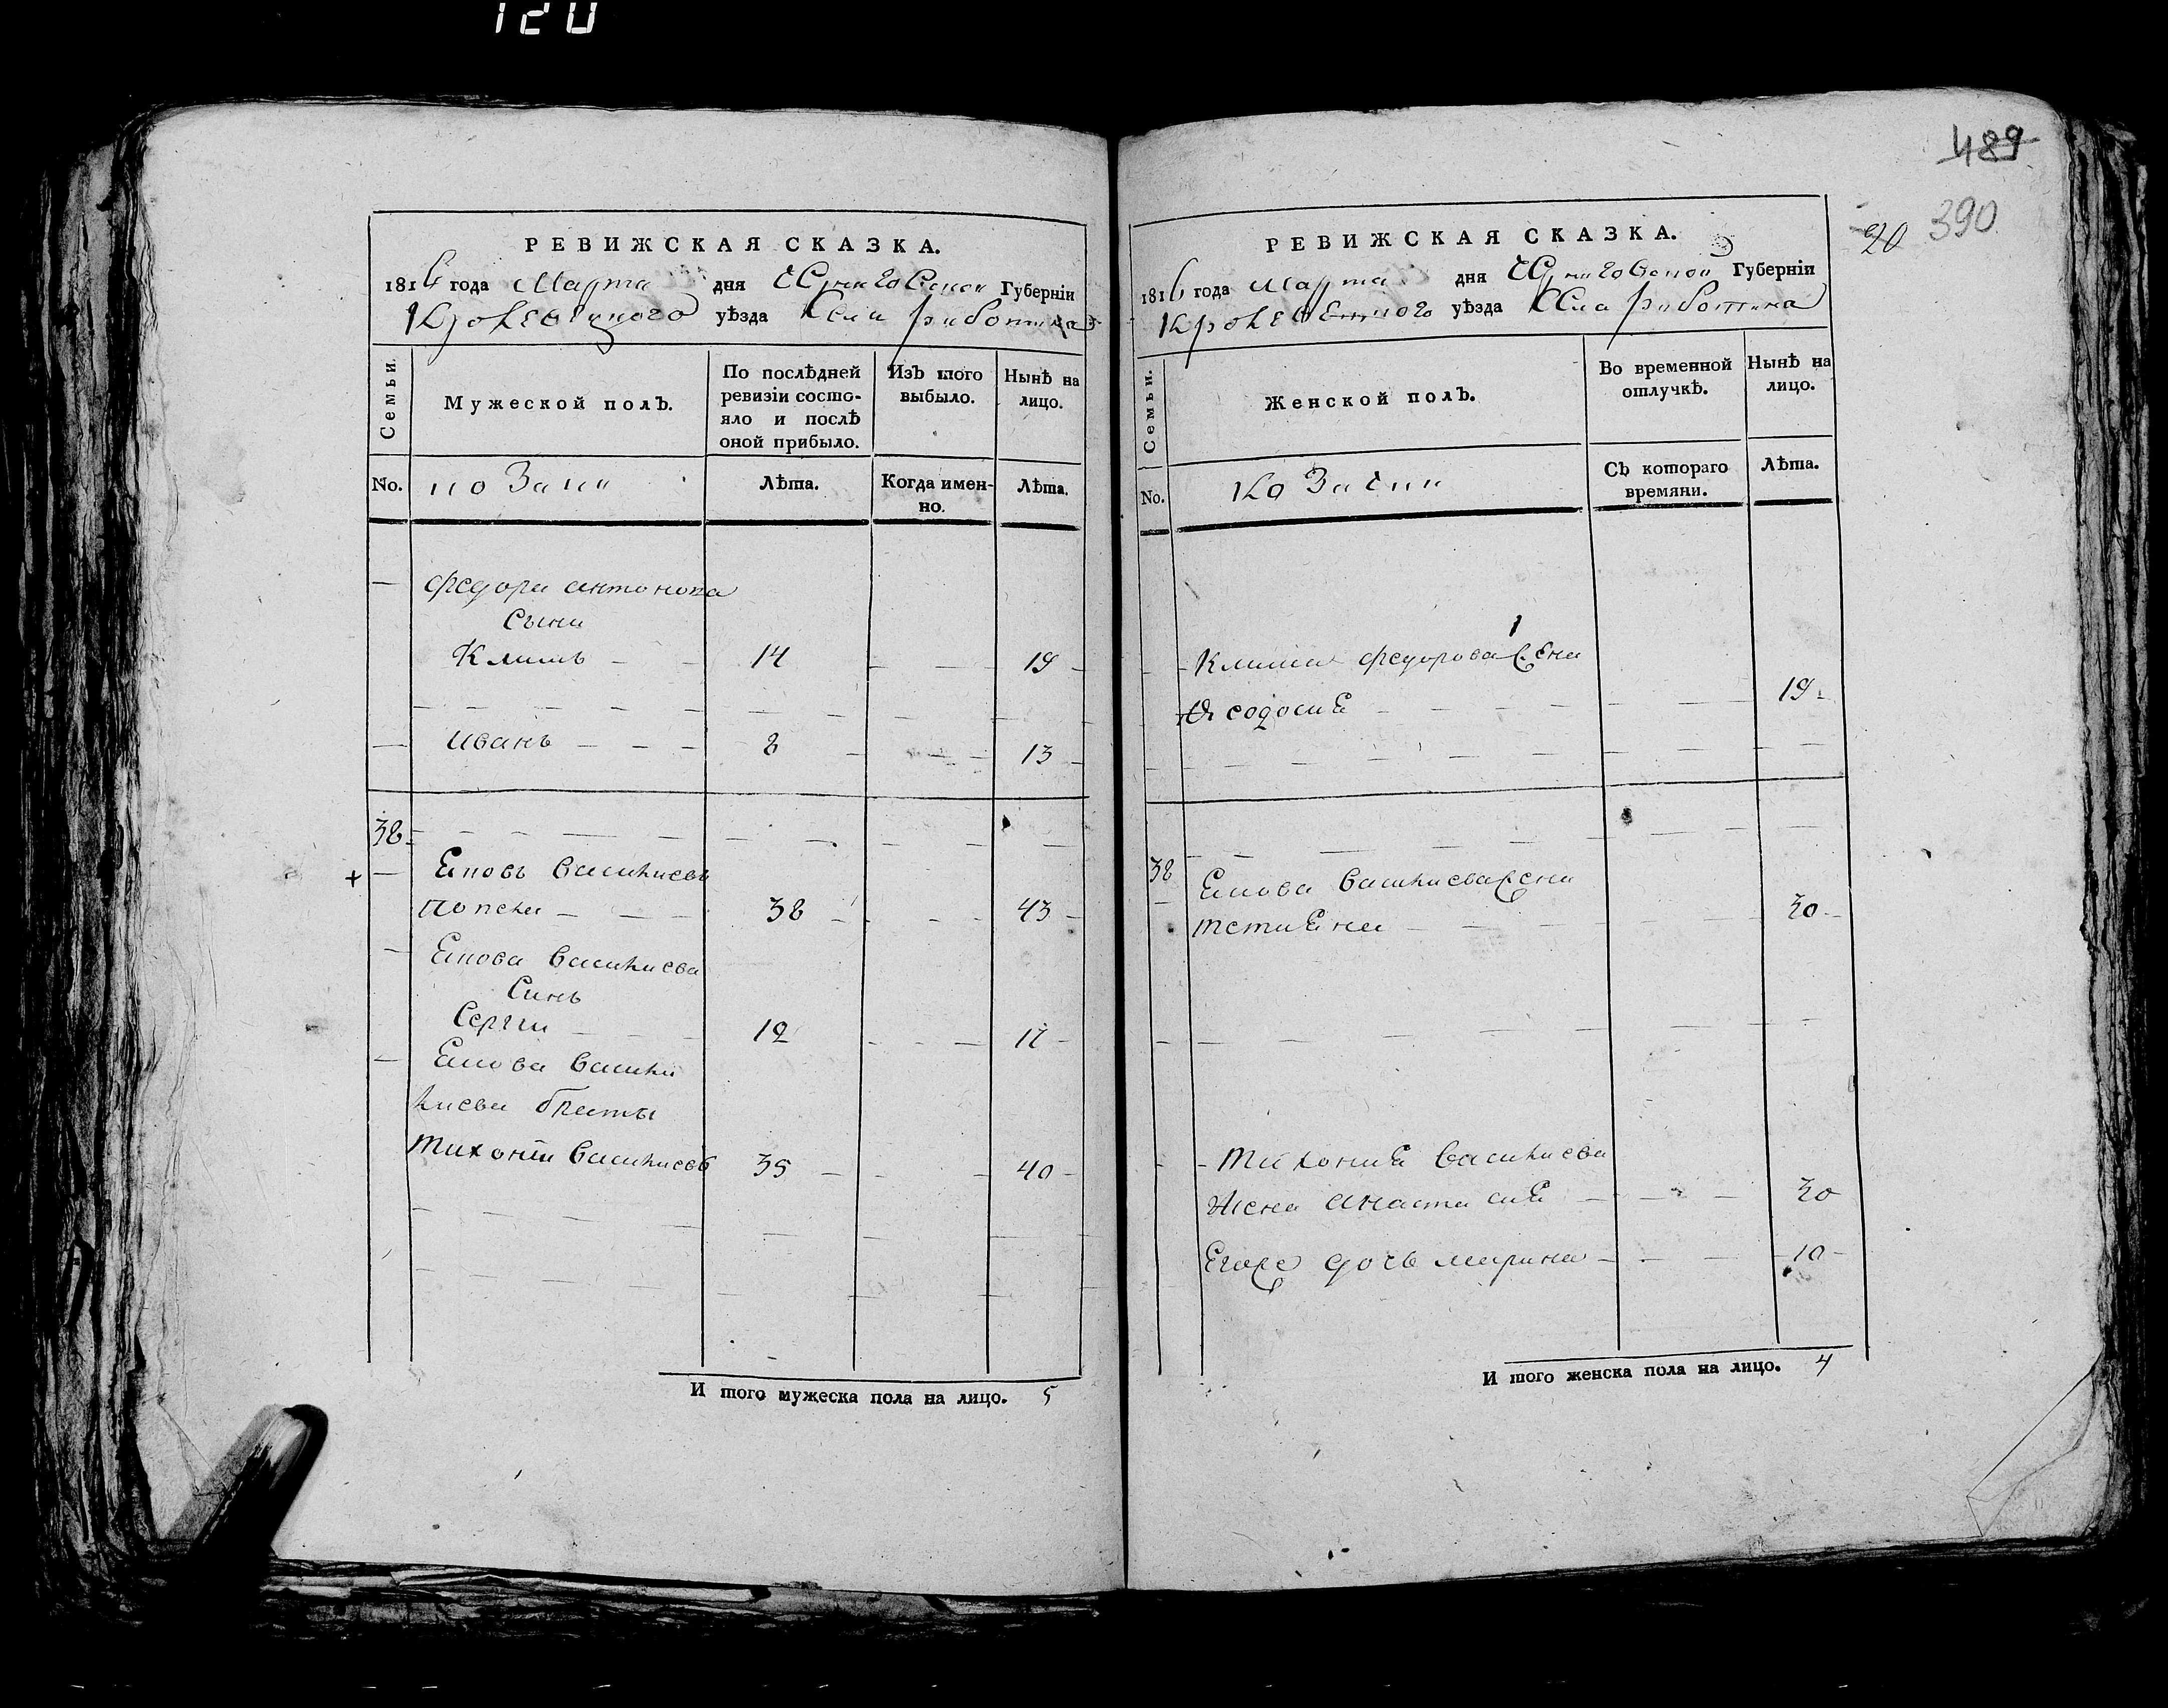 120
РЕВИЖСКАЯ СКАЗКА.
1816 года Марта дня Черниговской Губерніи
Кролевецкого уѣзда Села
Семьи.
Мужеской полъ.
По послѣдней ревизіи состо-
яло и послѣ
оной прибыло.
Изъ того
выбыло.
Нынѣ на
лицо.
No.
козаки
Лѣта.
Когда имен-
но.
Лѣта.
федора антонова
Сини
Климъ 14 19
Иванъ 8 13
38
Еповъ Василиевъ
38 43
Епова Василиева
Синъ
Сергии 12 17
Епова Васили
лиева браты
Тихонии Василиевъ 35 40
И того мужеска пола на лицо. 5
489
390
20
РЕВИЖСКАЯ СКАЗКА.
1816 года Марта дня Черниговской Губерніи
Кролевецкого уѣзда Села
Семьи.
Женской полъ.
Во временной
отлучкѣ.
Нынѣ на
лицо.
No.
козачки
Съ котораго
времяни.
Лѣта.
Клима федорова жена
Феодосия 19
38
Епова Василиева жена
30
Тихония Василиева
жена анастасия 30
Егоже дочь марина 10
И того женска пола на лицо. 4